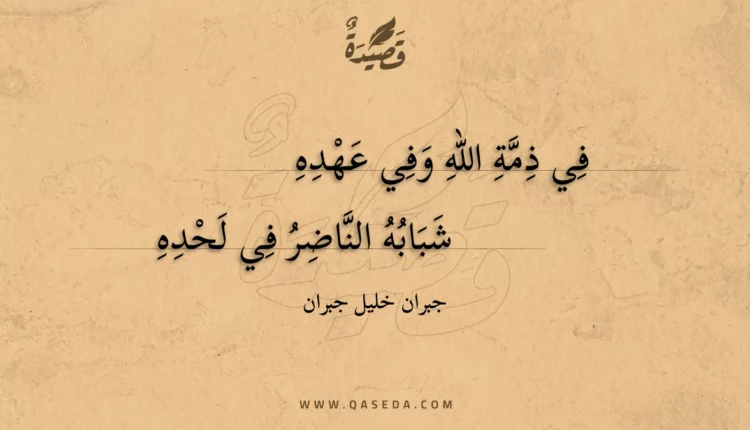 قَصِيْدَةٌ
فِي ذِمَّةِ اللهِ وَفِي عَهْدِهِ
شَبَابُهُ النَّاضِرُ فِي لَحْدِهِ
جبران خليل جبران
WWW.QASEDA.COM